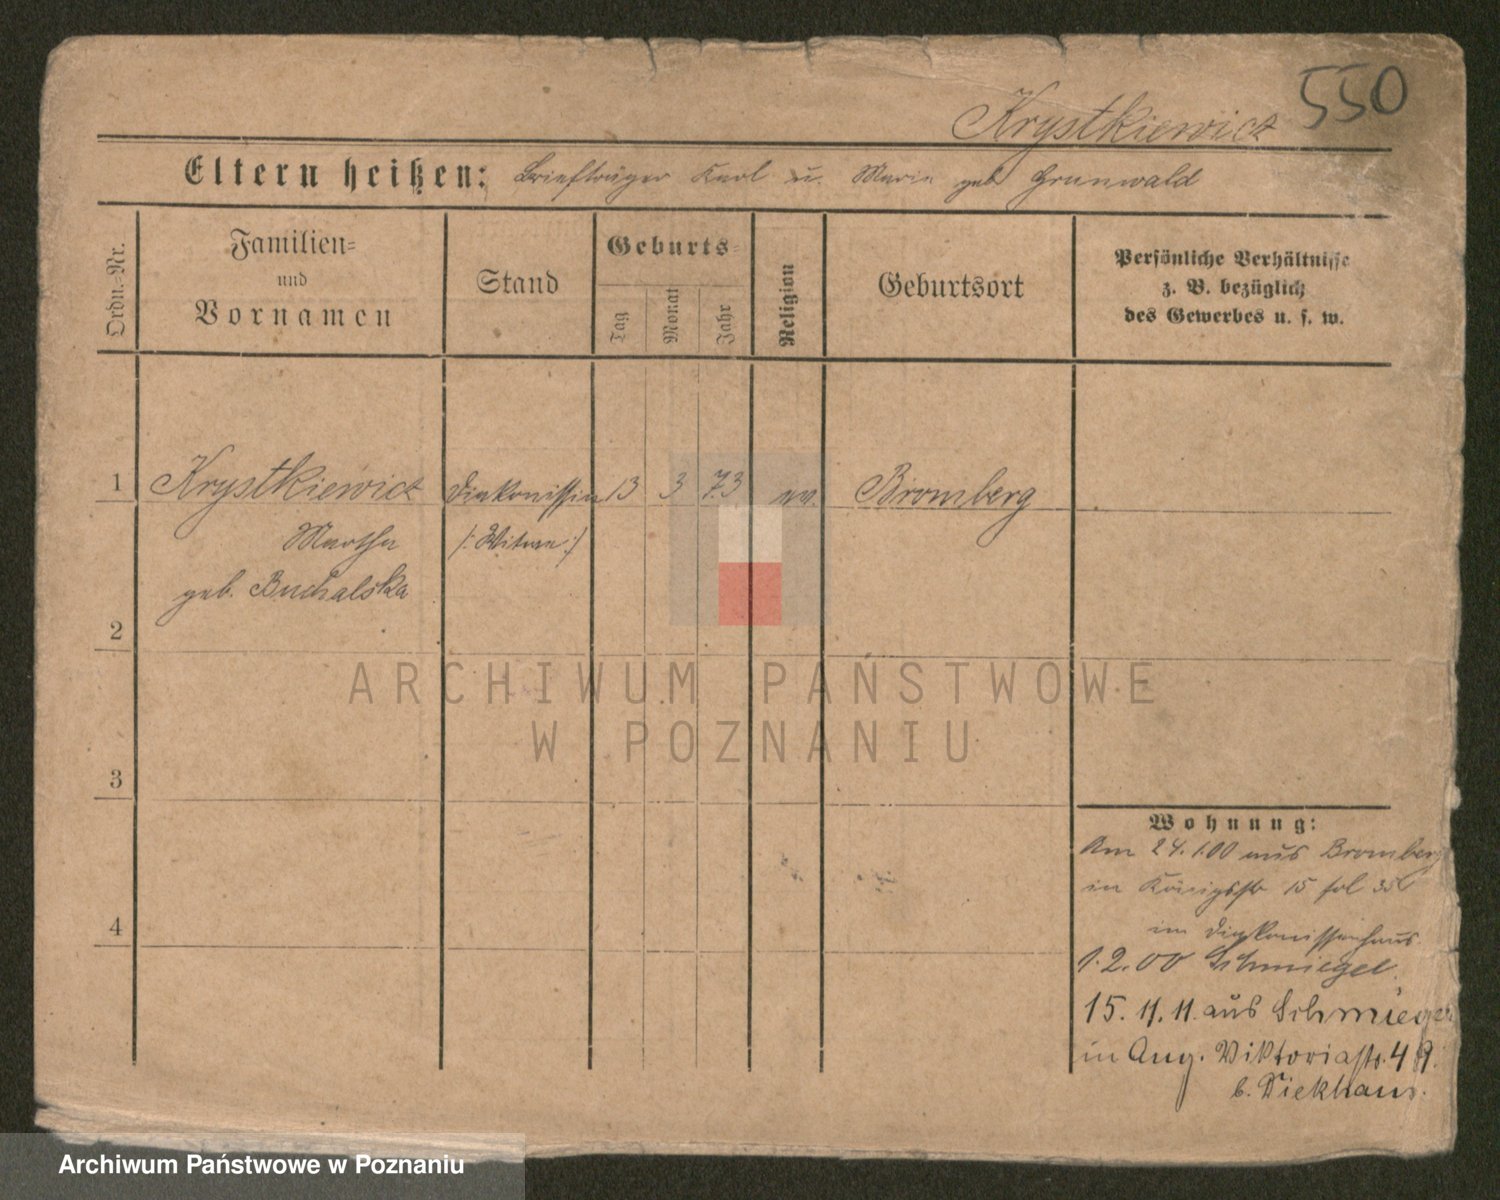 Krystkiewicz 550
Eltern heißen: Briefträger Karl u. Marie geb Grunwald
Ordn.-Nr.
Familien-
und
Vornamen
Stand
Geburts-
Tag
Monat
Jahr
Religion
Geburtsort
Persönliche Verhältnisse
z. B. bezüglich
des Gewerbes u. s. w.
1 Krystkiewicz Diakonissin 13 3 73 ev. Bromberg
Martha /: Witwe :/
geb. Buchalska
2
3
4
Wohnung:
Am 24.1.00 aus Bromberg
in Königsstr 15
im Diakonissenhaus
1.2.00 Schmiegel.
15. 11. 11. aus Schmiegel
in Aug. Viktoriastr. 49.
b. Diekhaus.
ARCHIWUM PAŃSTWOWE
W POZNANIU
Archiwum Państwowe w Poznaniu